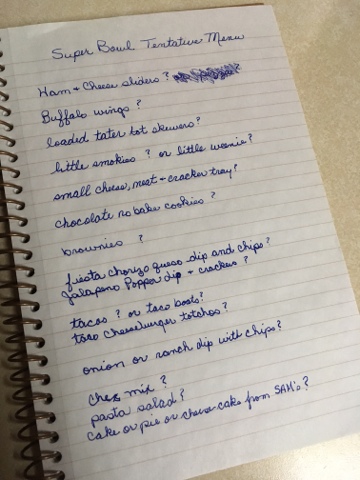 Super Bowl Tentative Menu
Ham + Cheese sliders?
Buffalo wings?
loaded tater tot skewers?
little smokies? or little weenie?
small cheese, meat + cracker tray?
chocolate no bake cookies?
brownies ?
fiesta chorizo queso dip and chips?
Jalapeno Popper dip + crackers?
tacos? or taco boats?
taco cheeseburger totchos?
onion or ranch dip with chips?
chex mix?
pasta salad?
cake or pie or cheese cake from SAM's?